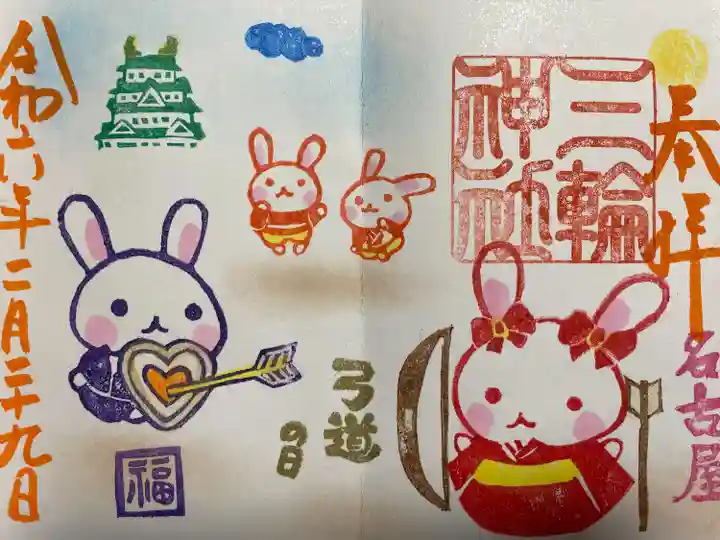 奉拝
名古屋
三輪
神社
弓道
の日
福
令和六年二月二十九日